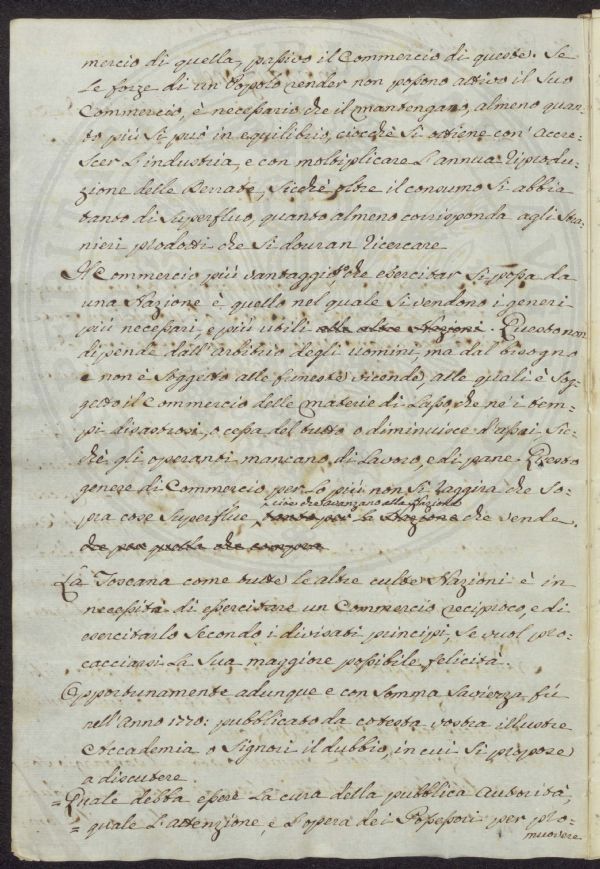 mercio di quella, passivo il Commercio di queste. Se
le forze di un Popolo render non possono attivo il suo
Commercio, è necessario che il mantengano, almeno quan=
to più si può in equilibrio, ciocchè si ottiene con' accre=
scer l'industria, e con moltiplicare l'annua riprodu=
zione delle Derrate, sicchè oltre il consumo si abbia
tanto di superfluo, quanto almeno corrisponda agli stra=
nieri prodotti che si douran ricercare
Il Commercio più vantaggioso, che esercitar si possa da
una Nazione è quello nel quale si vendono i generi
più necessari, e più utili alle altre Nazioni. Questo non
dipende dall'arbitrio degli uomini, ma dal bisogno
e non è soggetto alle funeste vicende, alle quali è sog=
getto il Commercio delle materie di lusso, che ne' i tem=
pi disastrosi, o cessa del tutto o diminuisce d'assai sic=
chè gli operanti mancano di lavoro, e di pane. Questo
genere di Commercio per lo più non si raggira che so=
pra cose superflue, cioè che avanzano alla Nazione tanto per la Nazione che vende,
che per quella che compra
La Toscana come tutte le altre culte Nazioni è in
necessità di esercitare un Commercio reciproco, e di
esercitarlo secondo i divisati principj, se vuol pro=
cacciarsi la sua maggiore possibile felicità.
Opportunamente adunque e con somma saviezza fù
nell'Anno 1770: pubblicato da cotesta vostra illustre
Accademia o Signori il dubbio, in cui si propose
a discutere
= Quale debba essere la cura della pubblica autorità,
= quale l'attenzione, e l'opera dei Possessori per pro=
muovere